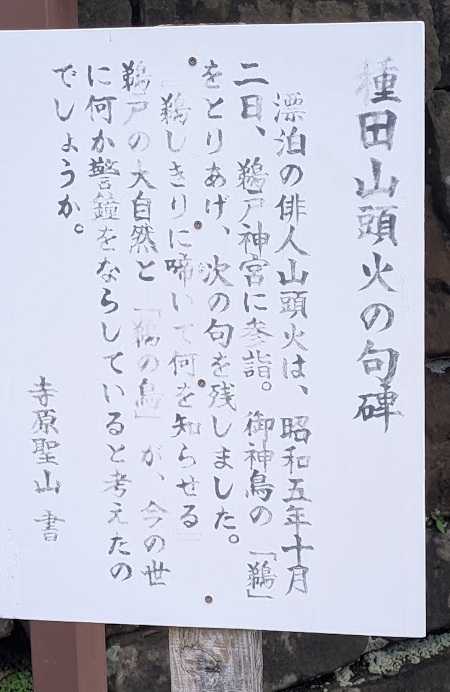 種田山頭火の句碑
漂泊の俳人山頭火は、昭和五年十月
二日、鵜戸神宮に参詣。御神鳥の「鵜」
をとりあげ、次の句を残しました。
「鵜しきりに啼いて何を知らせる」
鵜戸の大自然と「鵜の鳥」が、今の世
に何か警鐘をならしていると考えたの
でしょうか。
寺原聖山 書